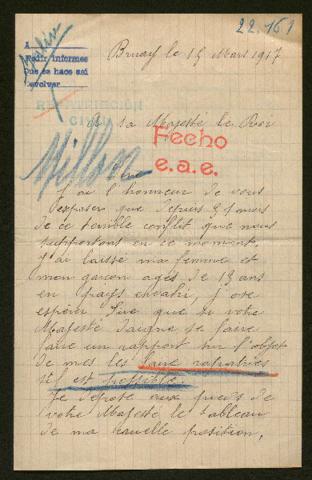 22.161
A
Pedir informes
Que se hace así
Devolver
Bruay le 15 Mars 1917
REPATRIACIÓN
CIVIL
A sa Majesté le Roi
Fecho
e.a.e.
Millon
J'ai l'honneur de vous
exposer que depuis
de ce terrible conflit que nous
supportons en ce moment,
J'ai laissé ma femme et
mon garçon agés de 13 ans
en pays envahi, J ose
espérer Sire que si votre
Majesté daigne se faire
faire un rapport sur l'objet
de mes les faire rapatriés
si est possible
Je dépose aux pieds de
votre Majesté le tableau
de ma cruelle position,